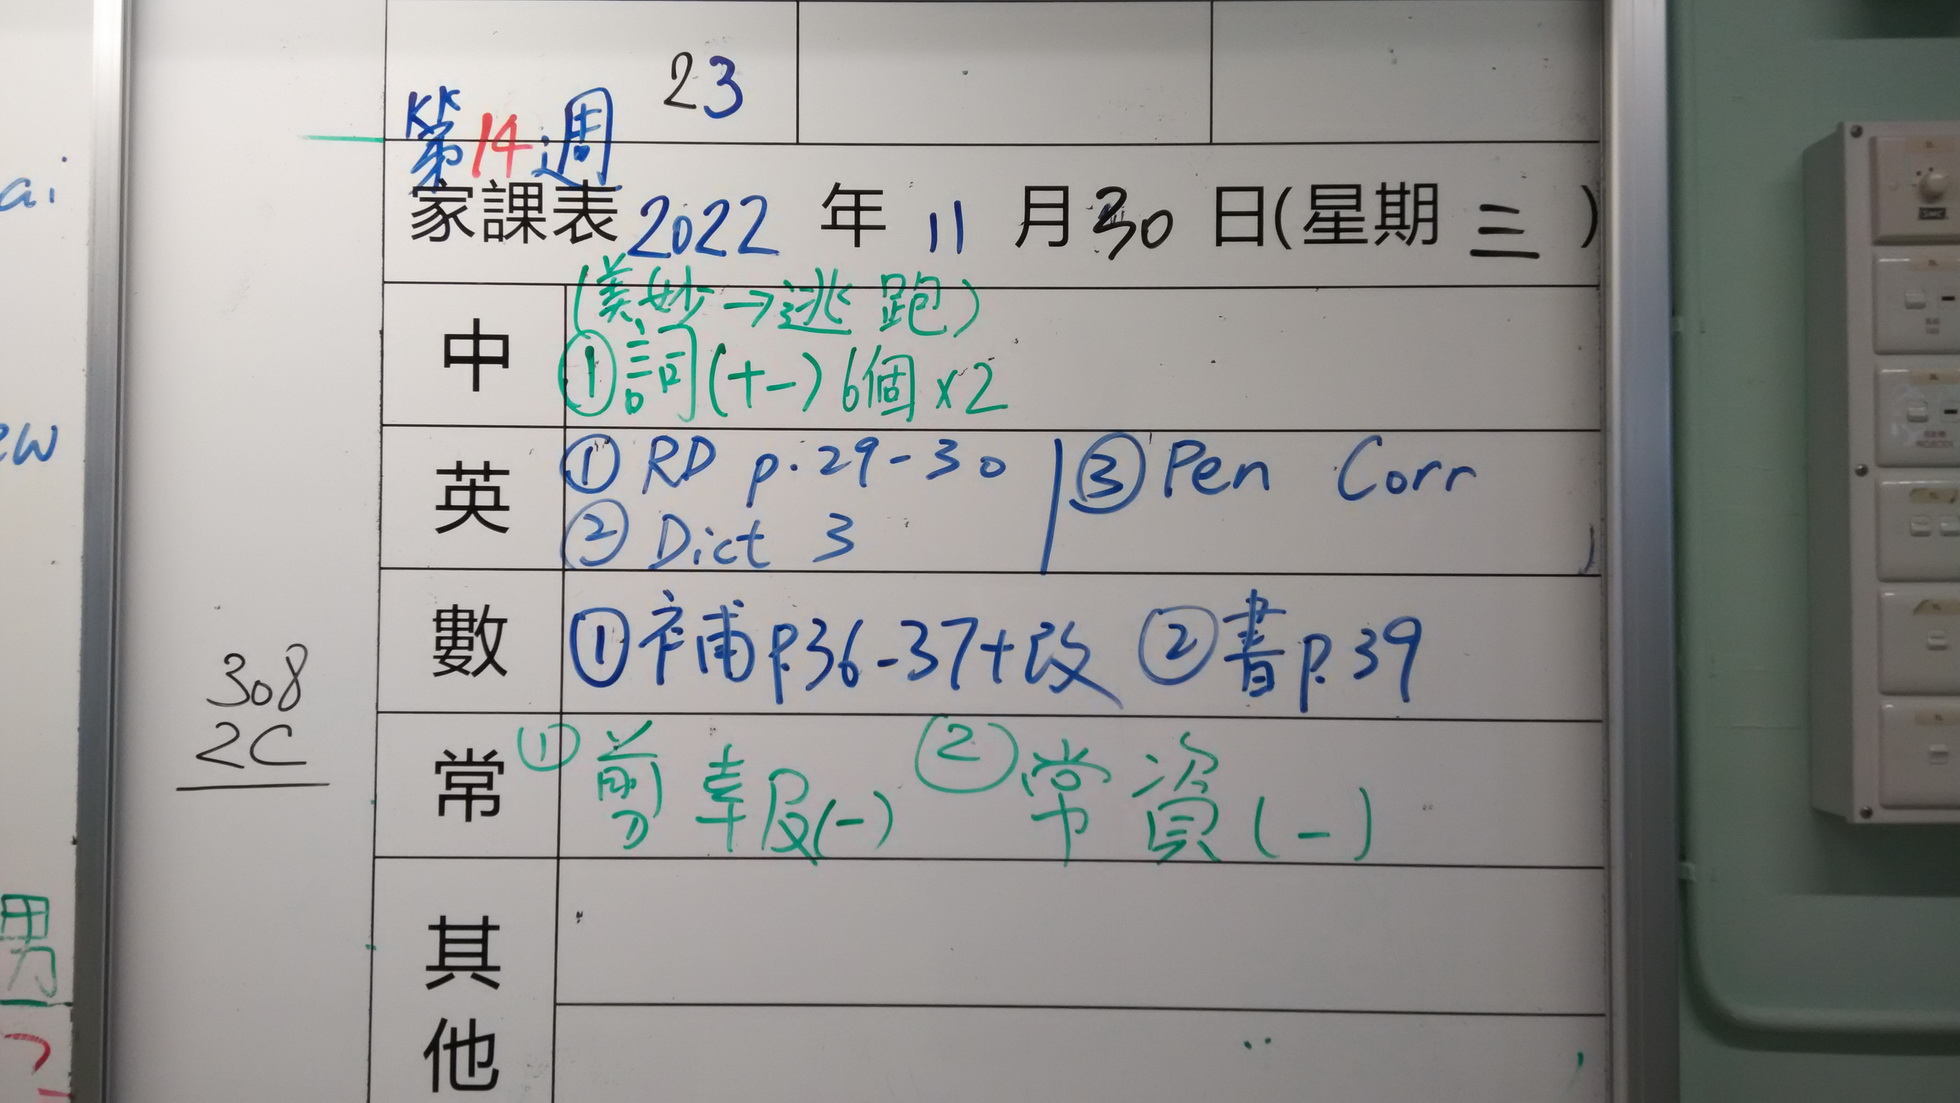 23
第14週
家課表 2022 年 11 月 30 日(星期 三 )
中
(美妙→逃跑)
①詞(十一)6個x2
英
① RD p.29-30
② Dict 3
③ Pen Corr
數
①補p.36-37+改 ②書p.39
常
①剪報(一) ②常資(一)
其
他
308
2C
ai
ew
男